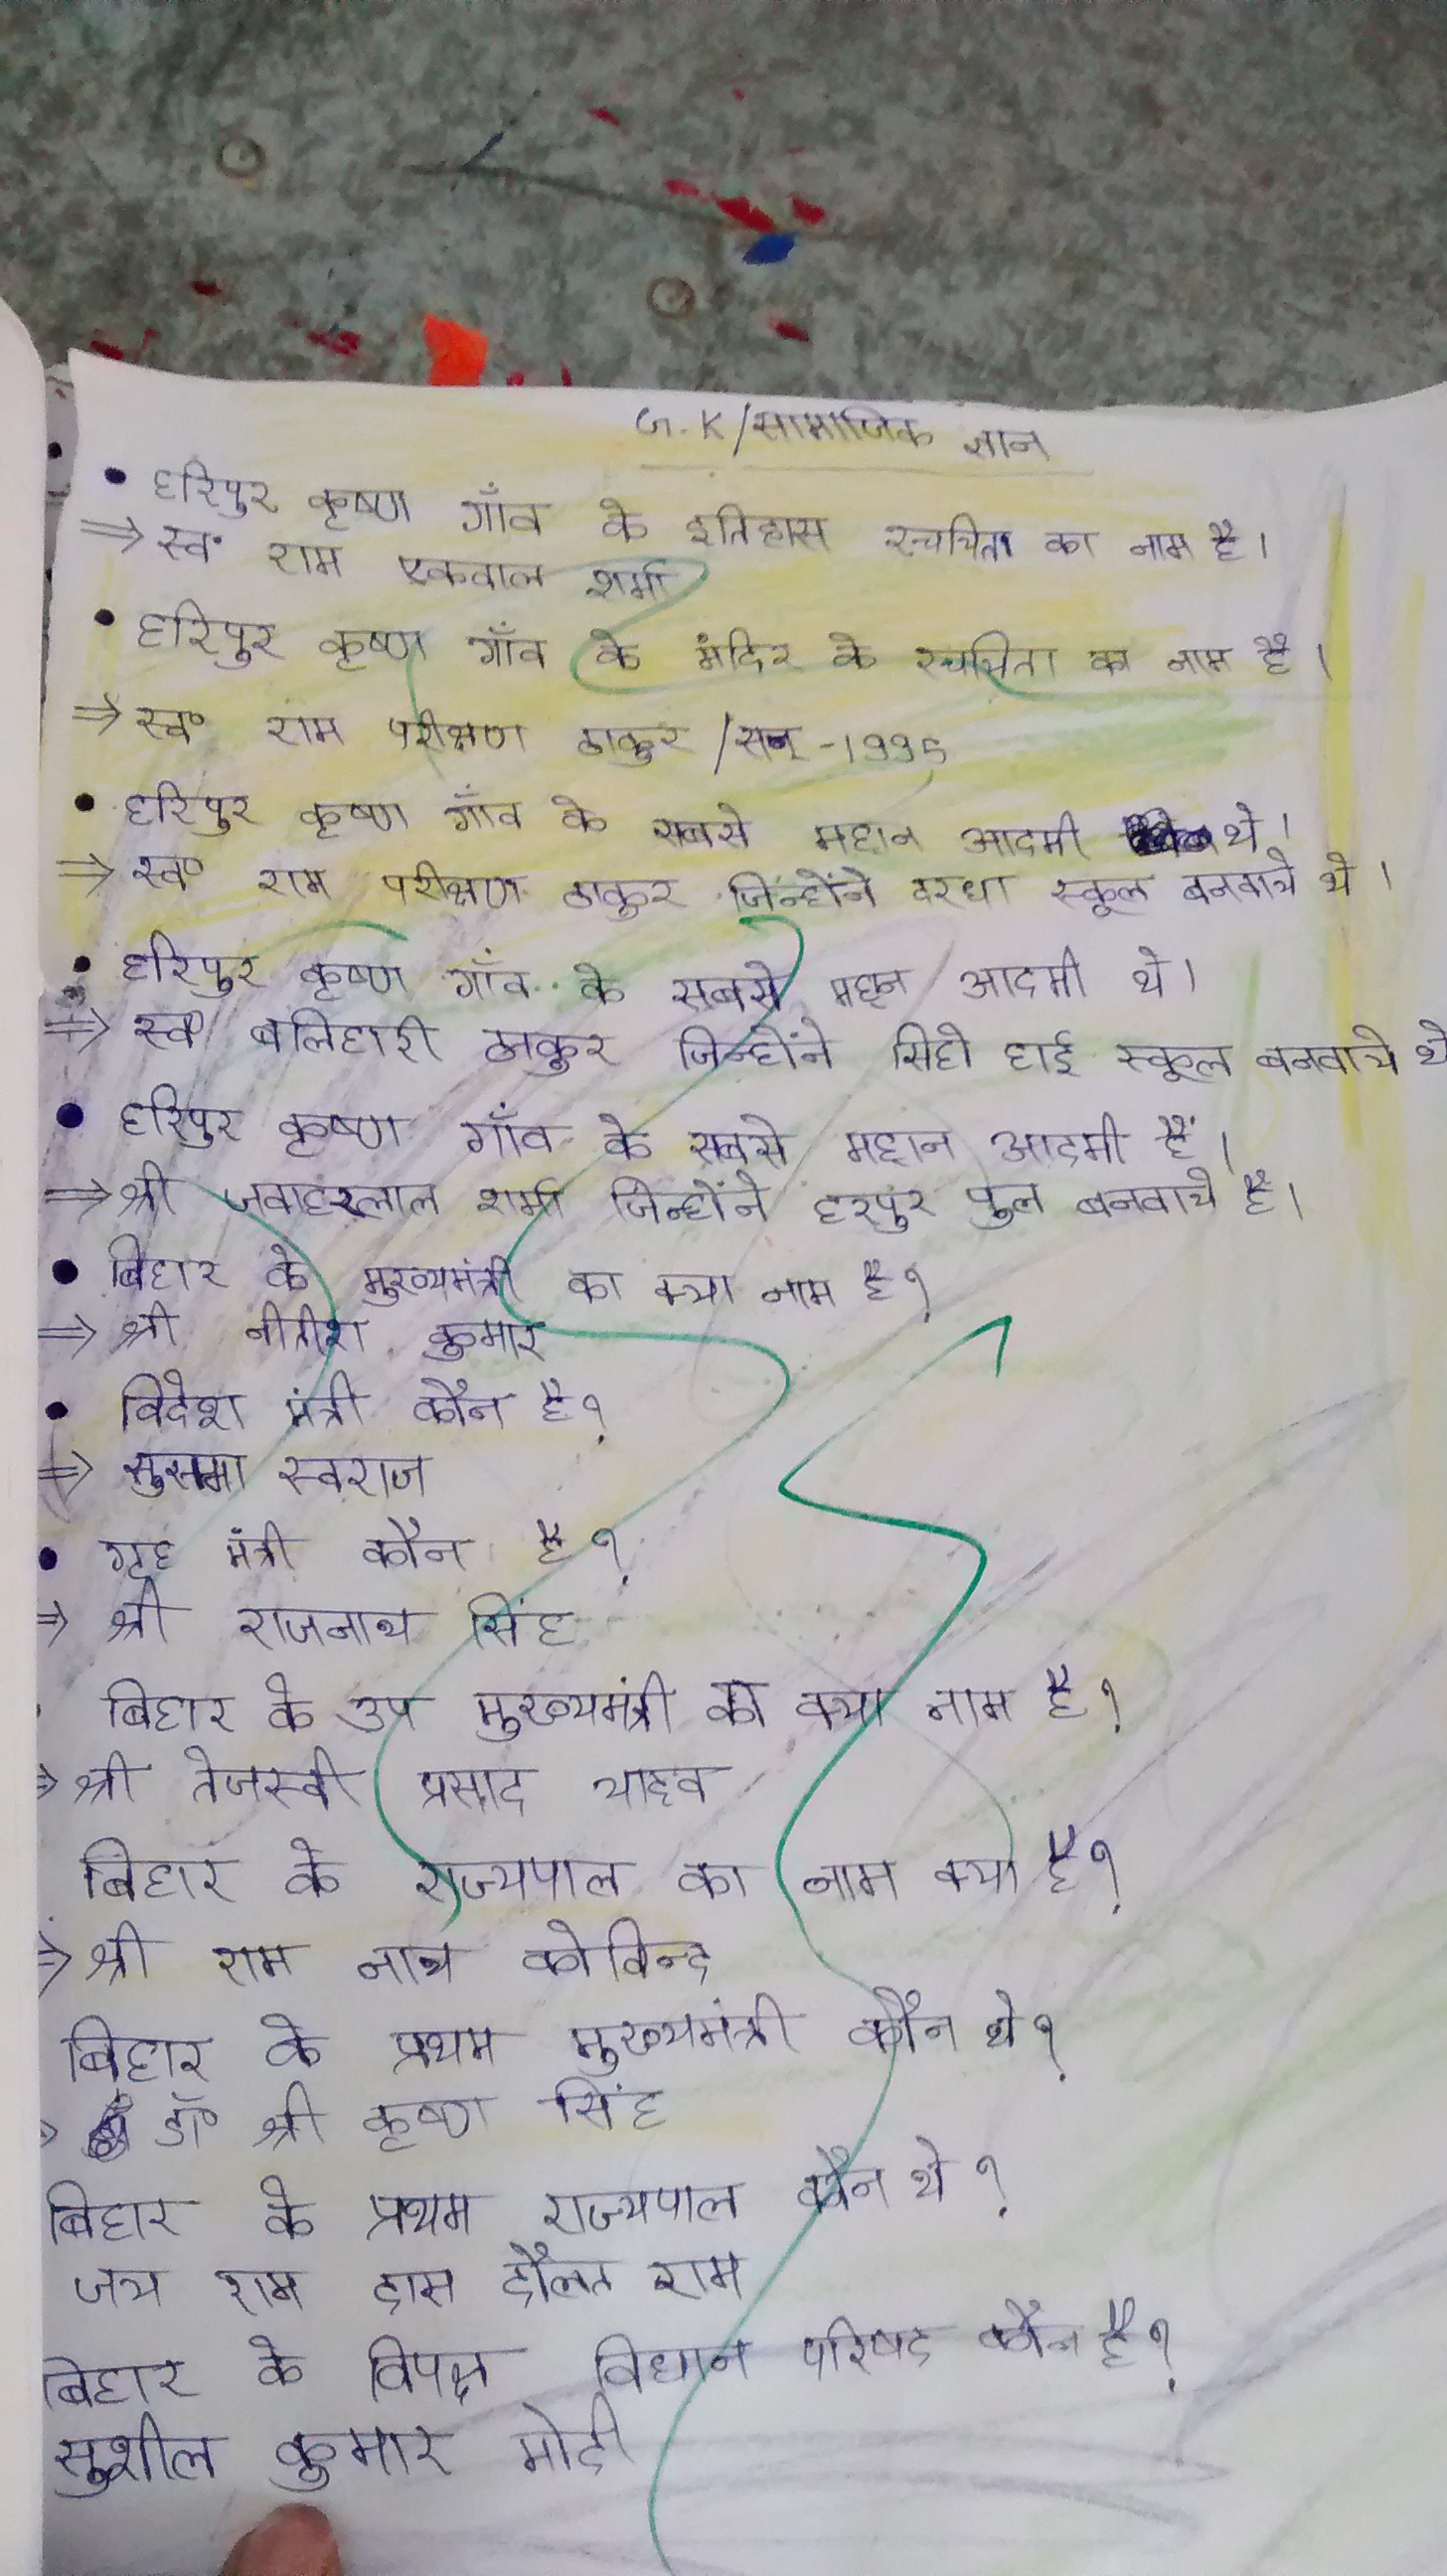 G.K/सामाजिक ज्ञान
• हरिपुर कृष्ण गाँव के इतिहास रचयिता का नाम है।
⇒ स्व॰ राम एकवाल शर्मा
• हरिपुर कृष्ण गाँव के मंदिर के रचयिता का नाम है।
⇒ स्व॰ राम परीक्षण ठाकुर /सन् -1995
• हरिपुर कृष्ण गाँव के सबसे महान आदमी थे।
⇒ स्व॰ राम परीक्षण ठाकुर जिन्होंने दरधा स्कूल बनवाये थे।
• हरिपुर कृष्ण गाँव के सबसे महान आदमी थे।
⇒ स्व॰ बलिहारी ठाकुर जिन्होंने सिहो हाई स्कूल बनवाये थे
• हरिपुर कृष्ण गाँव के सबसे महान आदमी हैं।
⇒ श्री जवाहरलाल शर्मा जिन्होंने हरपुर पुल बनवाये है।
• बिहार के मुख्यमंत्री का क्या नाम है?
⇒ श्री नीतीश कुमार
• विदेश मंत्री कौन है?
⇒ सुसमा स्वराज
• गृह मंत्री कौन है?
⇒ श्री राजनाथ सिंह
बिहार के उप मुख्यमंत्री का क्या नाम है?
⇒ श्री तेजस्वी प्रसाद यादव
बिहार के राज्यपाल का नाम क्या है?
⇒ श्री राम नाथ कोविन्द
बिहार के प्रथम मुख्यमंत्री कौन थे?
⇒ डॉ॰ श्री कृष्ण सिंह
बिहार के प्रथम राज्यपाल कौन थे?
जय राम दास दौलत राम
बिहार के विपक्ष विधान परिषद कौन है?
सुशील कुमार मोदी